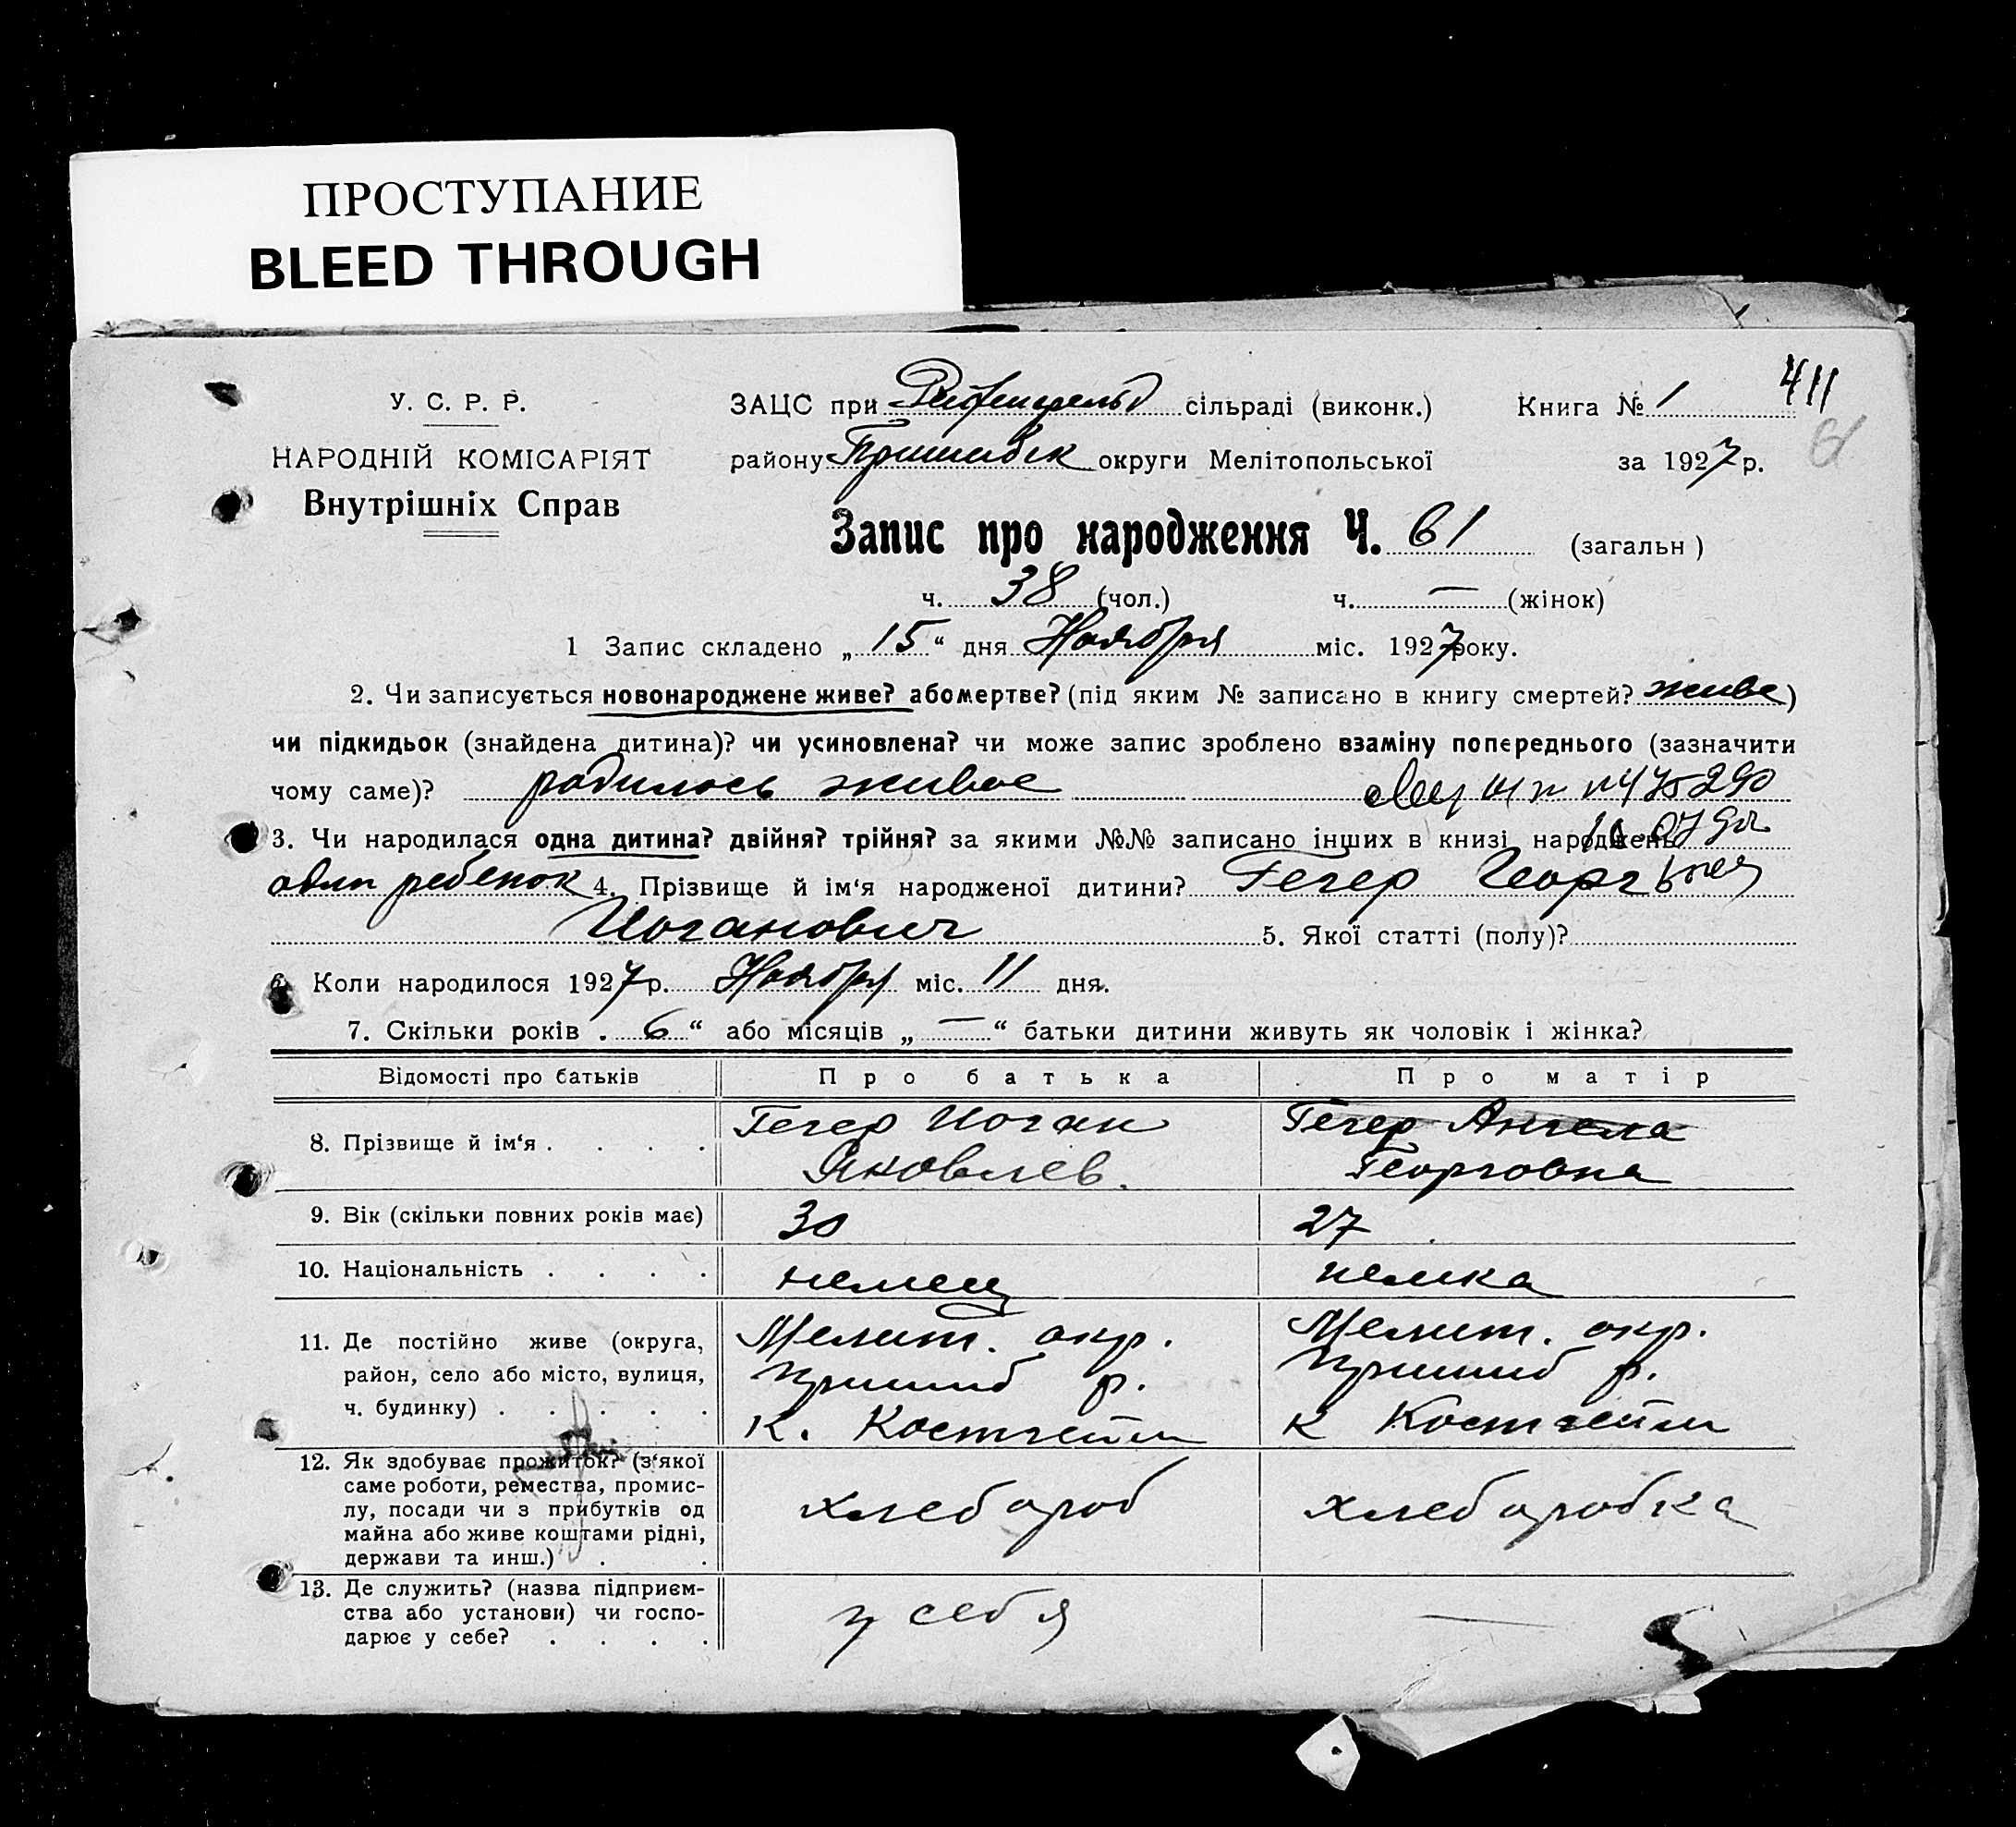 ПРОСТУПАНИЕ
BLEED THROUGH
411
61
У. С. Р. Р.
НАРОДНІЙ КОМІСАРІЯТ
Внутрішніх Справ
ЗАЦС при Рейхенфельд сільраді (виконк.) Книга № 1
району Пришибск округи Мелітопольської за 1927 р.
Запис про народження Ч. 61 (загальн)
ч. 38 (чол.) ч. — (жінок)
1 Запис складено „15“ дня Ноября міс. 1927 року.
2. Чи записується новонароджене живе? або мертве? (під яким № записано в книгу смертей? живе)
чи підкидьок (знайдена дитина)? чи усиновлена? чи може запис зроблено взаміну попереднього (зазначити
чому саме)? родилось живое
3. Чи народилася одна дитина? двійня? трійня? за якими №№ записано інших в книзі народжень
один ребенок 4. Прізвище й ім‘я народженої дитини? Гегер Георг
Иоганович 5. Якої статті (полу)?
6. Коли народилося 1927 р. Ноября міс. 11 дня.
7. Скільки років . 6 “ або місяців „ — “ батьки дитини живуть як чоловік і жінка?
Відомості про батьків Про батька Про матір
8. Прізвище й ім‘я . . . . Гегер Иоган Яковлев. Гегер Ангела Георговна
9. Вік (скільки повних років має) 30 27
10. Національність . . . . немец немка
11. Де постійно живе (округа, Мелит. окр. Мелит. окр.
район, село або місто, вулиця, Пришиб р. Пришиб р.
ч. будинку) . . . . . к. Костгейм к Костгейм
12. Як здобуває прожиток? (з‘якої
саме роботи, ремества, промис-
лу, посади чи з прибутків од хлебороб хлеборобка
майна або живе коштами рідні,
держави та инш.) . .
13. Де служить? (назва підприєм-
ства або установи) чи госпо- у себя —
дарює у себе? . . . .